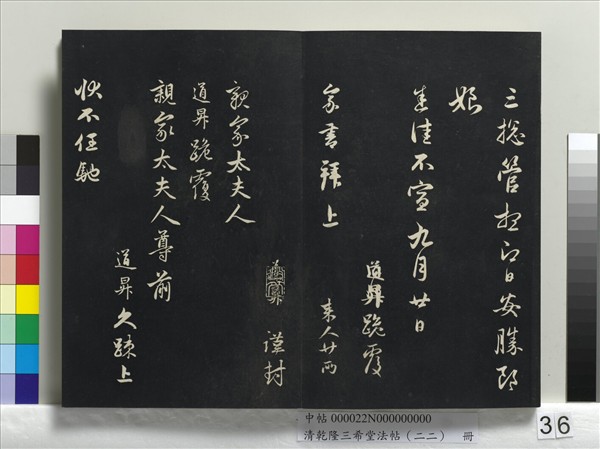 三總管想即日安勝郎
娘
悉佳不宣九月廿日
道昇跪覆
家書拜上
來人廿兩
謹封
親家太夫人
道昇跪覆
親家太夫人尊前
道昇久疎上
狀不任馳
中帖 000022N000000000
清乾隆三希堂法帖(二二) 冊
36